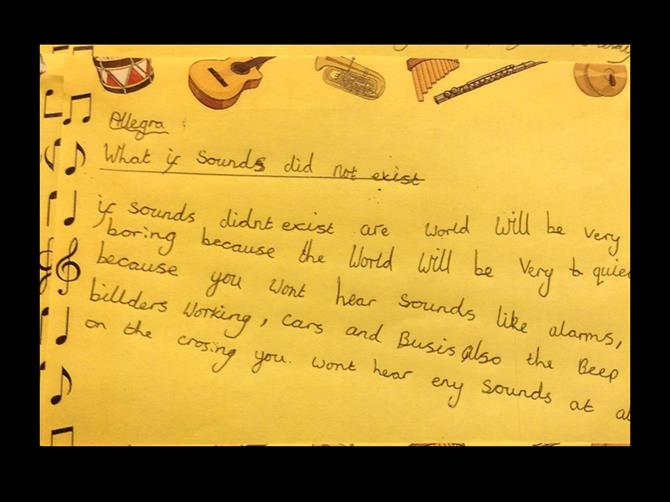 Allegra
What if Sounds did not exist
if sounds didnt exist are world will be very
boring because the World Will be Very quie
because you wont hear sounds like alarms,
billders working, cars and Busis Also the Beep
on the crosing you. wont hear eny sounds at al